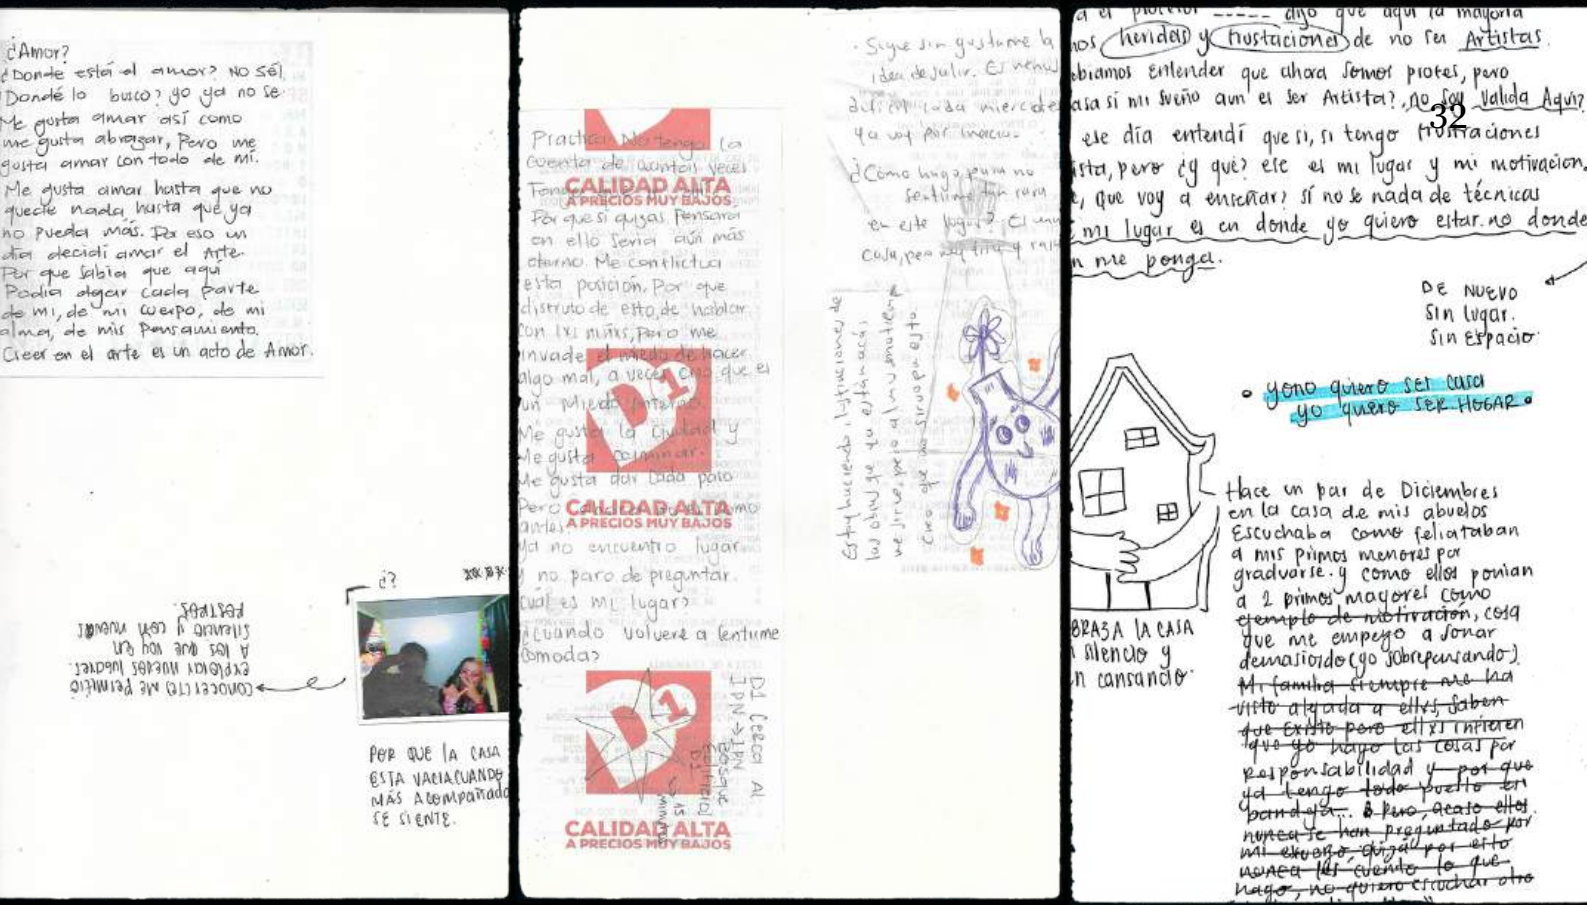 ¿Amor?
¿Donde está el amor? No sél
Dondé lo busco? yo ya no se
Me gusta amar así como
me gusta abrazar, Pero me
gusta amar con todo de mí.
Me gusta amar hasta que no
quede nada, hasta que ya
no pueda más. Por eso un
dia decidí amar el Arte.
Por que sabia que aquí
Podia dejar cada parte
de mi, de mi cuerpo, de mi
alma, de mis Pensamiento.
Creer en el arte es un acto de Amor.
¿?
CONOCER(TE) ME PERMITIÓ
EXPLORAR NUEVOS lugares.
A los que voy en
silencio y con nuevas
POSTRES.
POR QUE lA CASA
ESTA VACIA CUANDO
MÁS ACOMPAÑADA
SE SIENTE.
Practica No tengo la
cuenta de cuantas veces
Por que si quizas Pensara
en ello seria aún más
eterno. Me conflictua
esta posición, Por que
disfruto de esto, de hablar
con lxs niñxs, Pero me
invade el miedo de hacer
algo mal, a veces creo que es
un Miedo interno.
Me gusta la Ciudad y
Me gusta caminar.
Me gusta dar Cada paso
Pero como
antes.
Ya no encuentro lugar
y no paro de preguntar.
Cuál es mi lugar?
¿Cuándo volveré a sentirme
Comoda?
CALIDAD ALTA
A PRECIOS MUY BAJOS
D1
CALIDAD ALTA
A PRECIOS MUY BAJOS
D1
CALIDAD ALTA
A PRECIOS MUY BAJOS
D1 CERCA AL
IPN → IPN
Bosque
15
minutos
. Sigue sin gustarme la
idea de salir. Es menos
dificil cada miercoles
ya voy por inercia.
¿Cómo hago para no
sentirme tan rara
en este lugar? Es una
casa, pero muy fria y
Estoy haciendo listiaciones de
las obras que ya están acá,
creo que no sirvo pa esto.
dijo que aquí la mayoría
heridas y frustaciones de no ser Artistas.
ebiamos entender que ahora somos profes, pero
asa si mi sueño aun es ser Artista?, no soy Valida Aquí?
32
ese día entendí que si, si tengo frustraciones
ista, pero ¿y qué? ese es mi lugar y mi motivacion.
e, que voy a enseñar? sí no se nada de técnicas
mi lugar es en donde yo quiero estar. no donde
n me ponga.
DE NUEVO
Sin lugar.
Sin Espacio.
• yo no quiero ser casa
yo quiero SER HOGAR •
BRAZA lA CASA
silencio y
n cansando.
Hace un par de Diciembres
en la casa de mis abuelos
Escuchaba como feliataban
a mis primos menores por
graduarse. y como ellos ponian
a 2 primos mayores como
ejemplo de motivación, cosa
que me empezo a sonar
demasiado (yo sobrepensando).
Mi familia siempre me ha
visto algada a ellxs, saben
que Existo pero ellxs infieren
que yo hago las cosas por
Responsabilidad y por que
ya tengo todo puesto en
bandeja... Pero, acaso ellos
nunca se han preguntado por
mi esfuerzo, quizá por esto
nunca les cuento lo que
hago, no quiero escuchar otro